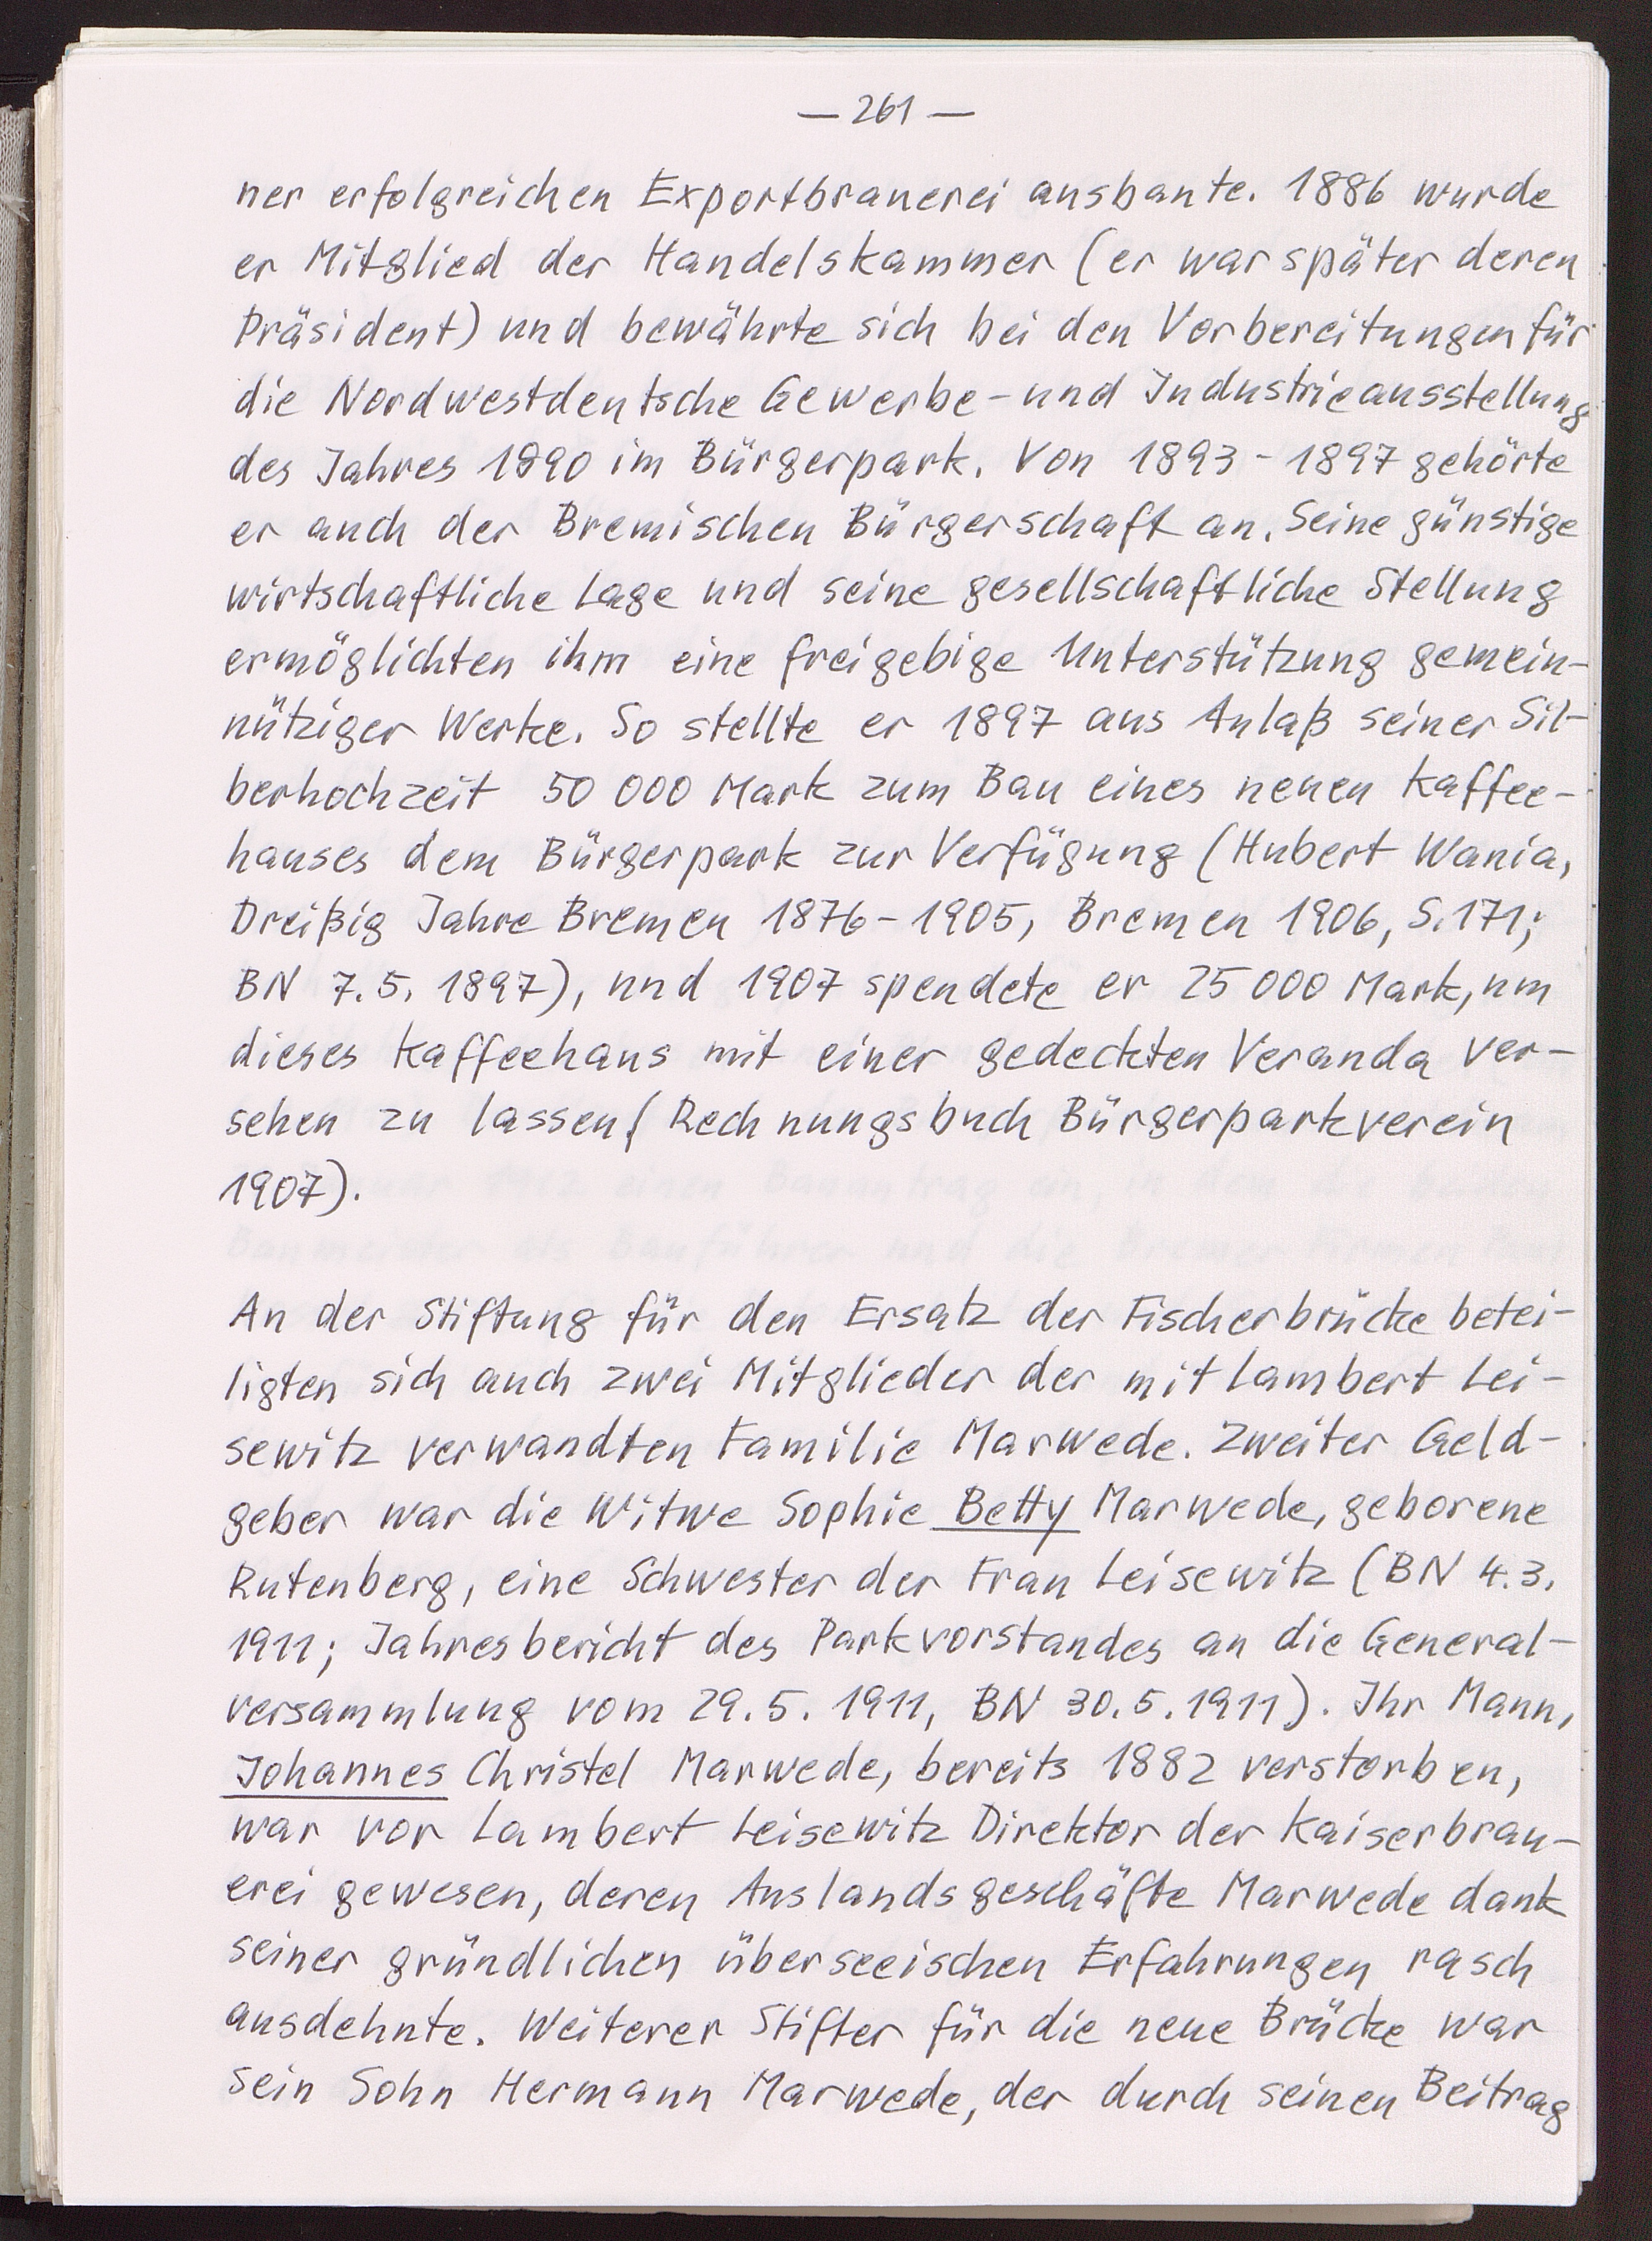 — 261 —
ner erfolgreichen Exportbrauerei ausbaute. 1886 wurde
er Mitglied der Handelskammer (er war später deren
Präsident) und bewährte sich bei den Vorbereitungen für
die Nordwestdeutsche Gewerbe- und Industrieausstellung
des Jahres 1890 im Bürgerpark. Von 1893 - 1897 gehörte
er auch der Bremischen Bürgerschaft an. Seine günstige
wirtschaftliche Lage und seine gesellschaftliche Stellung
ermöglichten ihm eine freigebige Unterstützung gemein-
nütziger Werke. So stellte er 1897 aus Anlaß seiner Sil-
berhochzeit 50 000 Mark zum Bau eines neuen Kaffee-
hauses dem Bürgerpark zur Verfügung (Hubert Wania,
Dreißig Jahre Bremen 1876-1905, Bremen 1906, S. 171;
BN 7.5. 1897), und 1907 spendete er 25 000 Mark, um
dieses Kaffeehaus mit einer gedeckten Veranda ver-
sehen zu lassen (Rechnungsbuch Bürgerparkverein
1907).
An der Stiftung für den Ersatz der Fischerbrücke betei-
ligten sich auch zwei Mitglieder der mit Lambert Lei-
sewitz verwandten Familie Marwede. Zweiter Geld-
geber war die Witwe Sophie Betty Marwede, geborene
Rutenberg, eine Schwester der Frau Leisewitz (BN 4.3.
1911; Jahresbericht des Parkvorstandes an die General-
versammlung vom 29.5. 1911, BN 30.5.1911). Ihr Mann,
Johannes Christel Marwede, bereits 1882 verstorben,
war vor Lambert Leisewitz Direktor der Kaiserbrau-
erei gewesen, deren Auslandsgeschäfte Marwede dank
seiner gründlichen überseeischen Erfahrungen rasch
ausdehnte. Weiterer Stifter für die neue Brücke war
sein Sohn Hermann Marwede, der durch seinen Beitrag